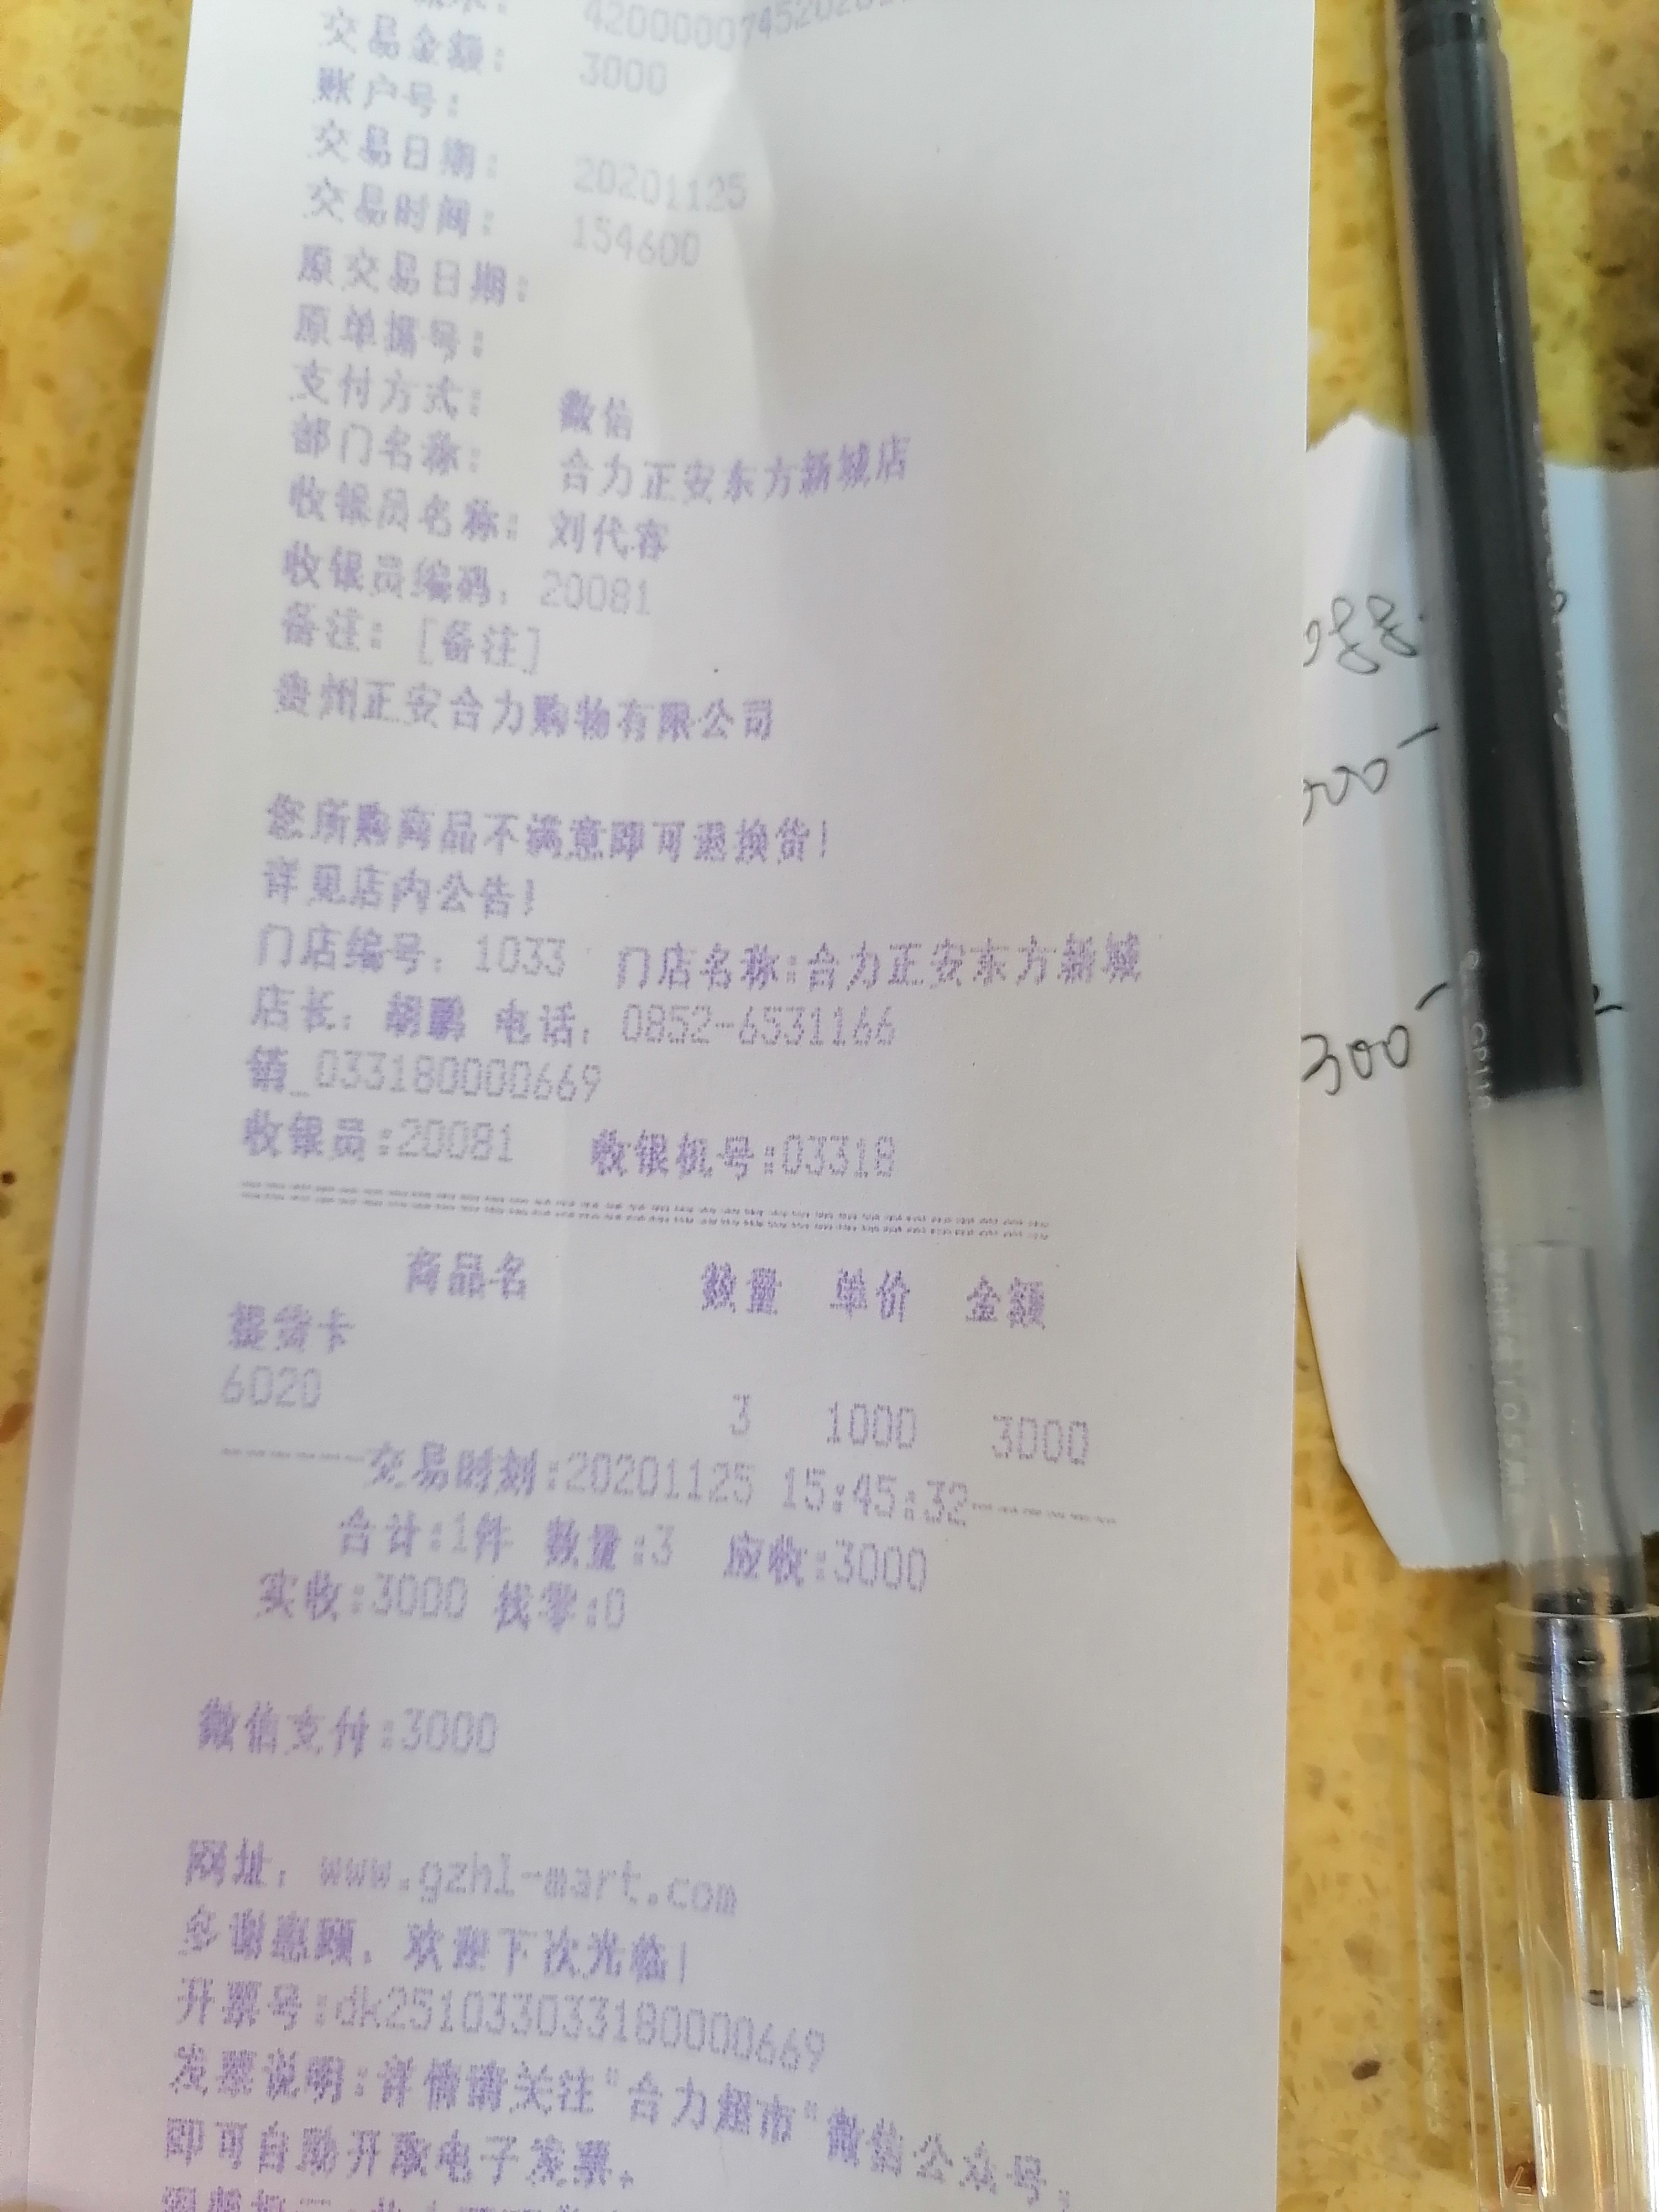 交易金额: 3000
账户号:
交易日期: 20201125
交易时间: 154600
原交易日期:
原单据号:
支付方式: 微信
部门名称: 合力正安东方新城店
收银员名称: 刘代容
收银员编码: 20081
备注: [备注]
贵州正安合力购物有限公司
您所购商品不满意即可退换货!
详见店内公告!
门店编号: 1033 门店名称:合力正安东方新城
店长: 胡鹏 电话: 0852-6531166
销_033180000669
收银员:20081 收银机号:03318
商品名 数量 单价 金额
提货卡
6020 3 1000 3000
-----交易时刻:20201125 15:45:32-----
合计:1件 数量:3 应收:3000
实收:3000 找零:0
微信支付:3000
网址: www.gzhl-mart.com
多谢惠顾, 欢迎下次光临!
开票号:dk251033033180000669
发票说明:详情请关注"合力超市"微信公众号,
即可自助开取电子发票。
300-